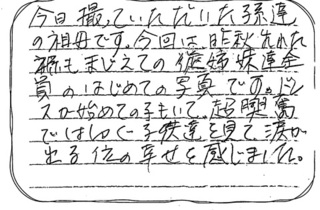 今日撮っていただいた孫達
の祖母です。今回は昨秋生れた
孫もまじえての従姉妹達全
員のはじめての写真です。ドレ
スが始めての子もいて、超興奮
ではしゃぐ子供達を見て涙が
出る位の幸せを感じました。